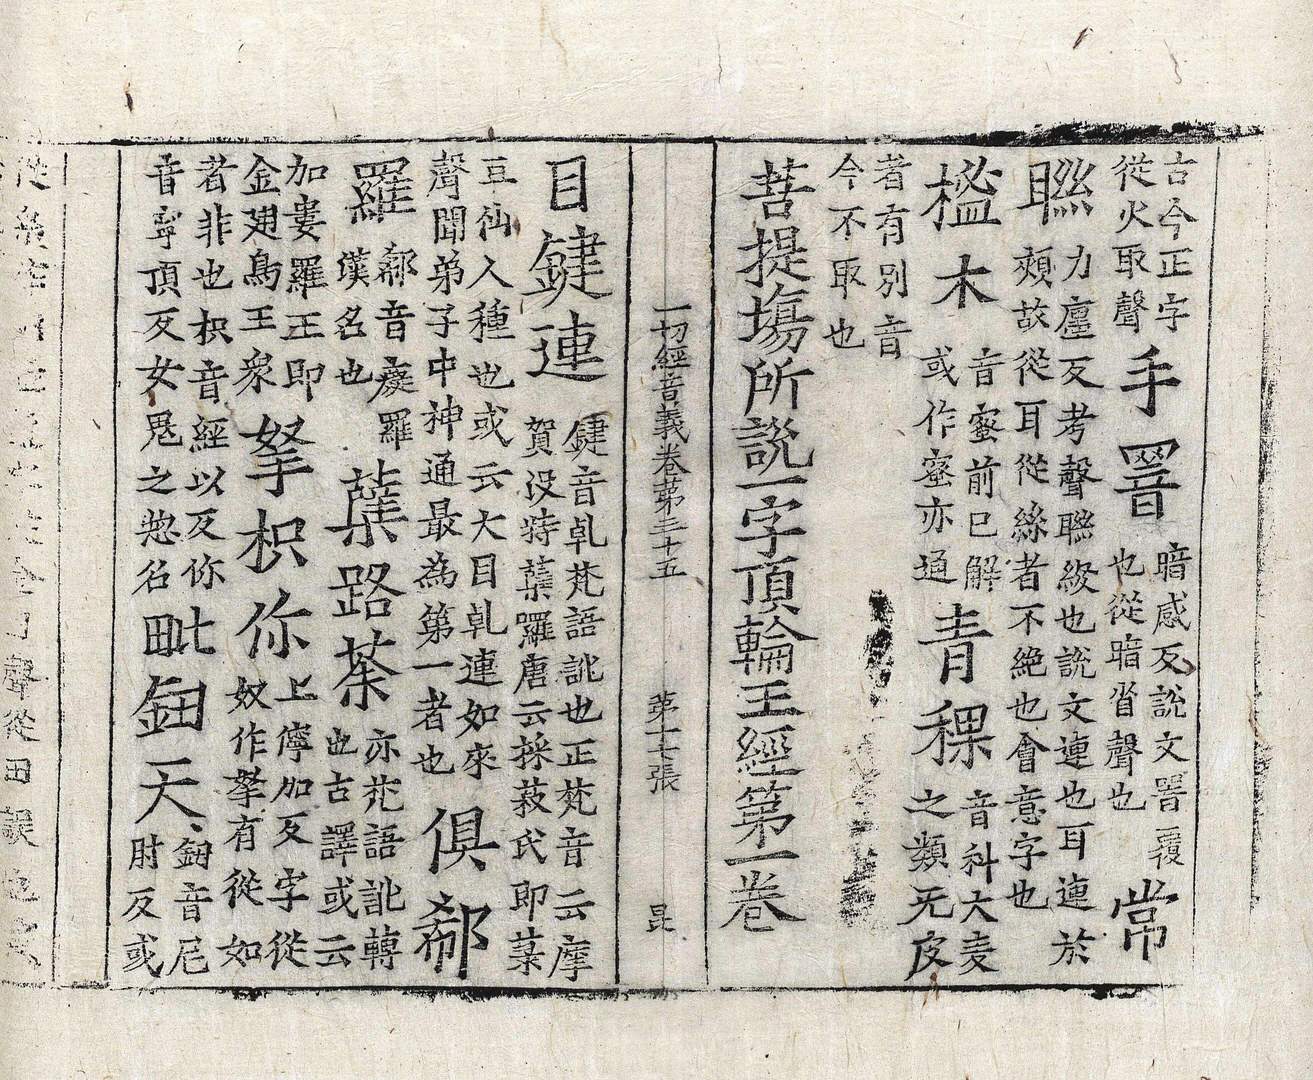 古今正字從火取聲手罯暗感反說文罯覆也從暗省聲也常
聮力廛反考聲聮綴也說文連也耳連於頰故從耳從絲者不絶也會意字也
榓木音蜜前已解或作蜜亦通青稞音科大麦之類无皮
者有別音今不取也
菩提場所說一字頂輪王經第一卷
一切經音義卷第三十五 第十七張 昆
目鍵連鍵音乹梵語訛也正梵音云摩賀没特蘗羅唐云採菽氏即菉
豆仙人種也或云大目乹連如來聲聞弟子中神通最為第一者也俱郗
羅郗音羅漢名也蘗路茶亦梵語訛轉也古譯或云
加婁羅王即金翅鳥王衆拏枳你上儜加反字從奴作拏有從如
者非也枳音經以反你音寧頂反女鬼之惣名毗鈕天鈕音尼肘反或